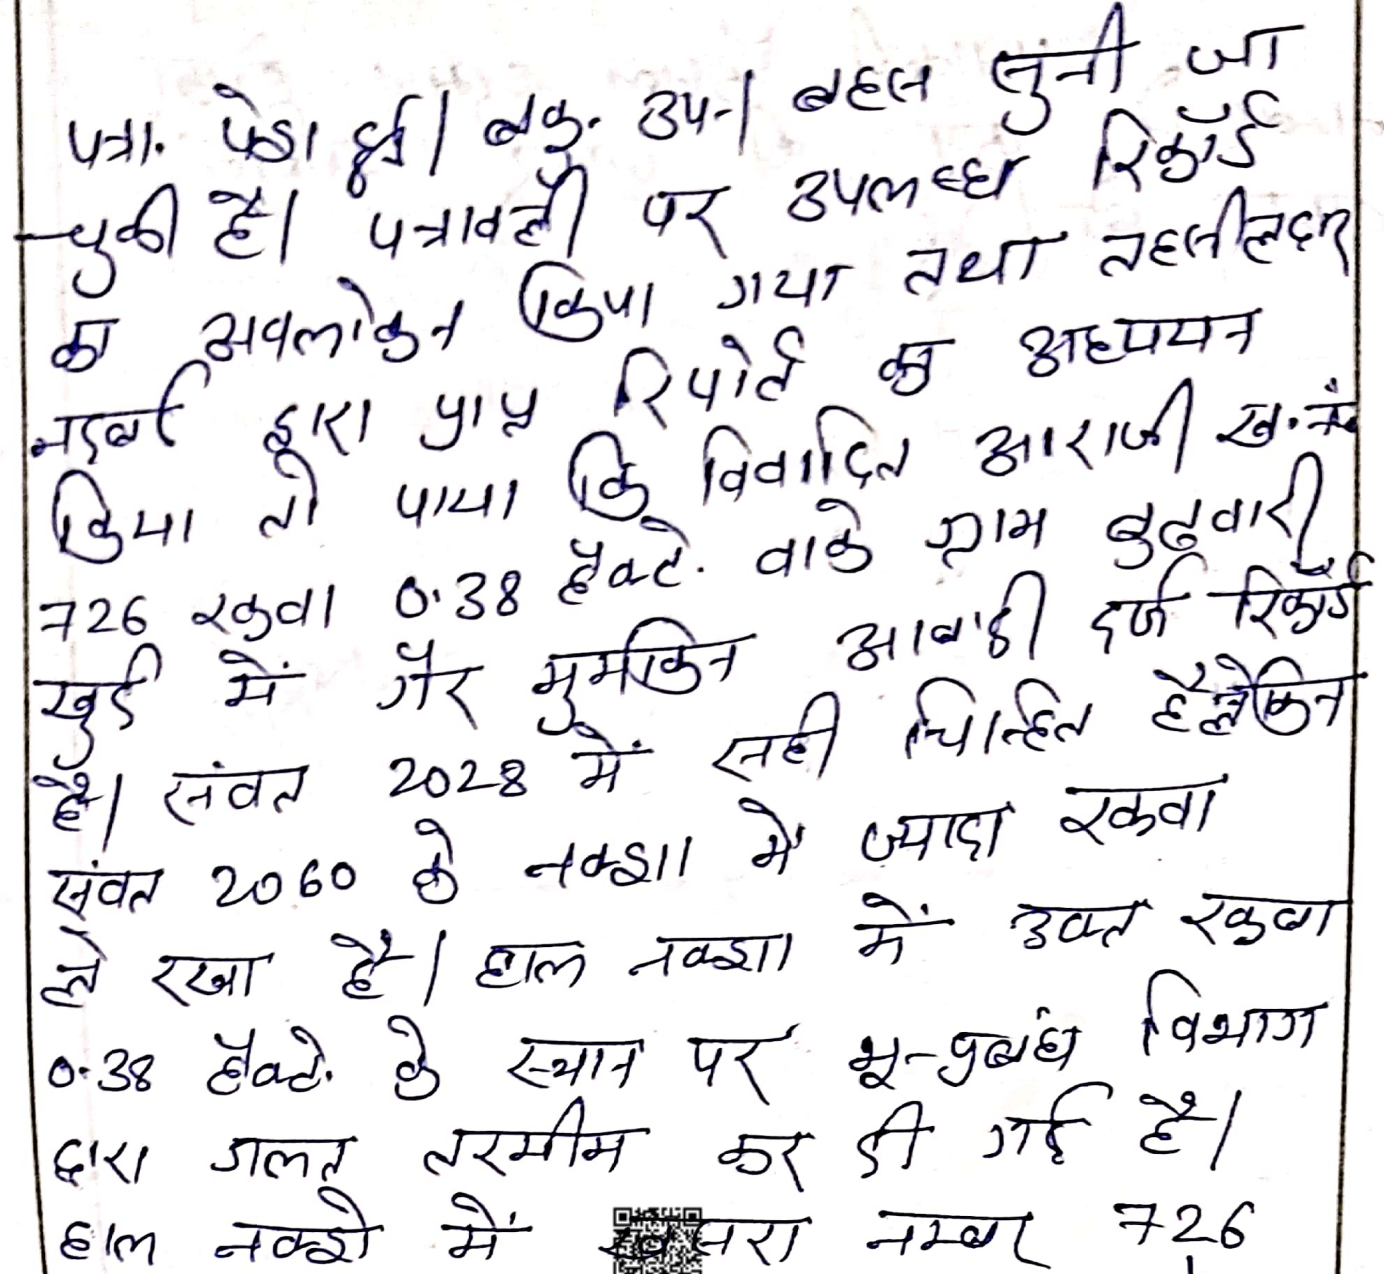 पत्रा. पेश हुई। वकु. उप.। बहस सुनी जा
चुकी है। पत्रावली पर उपलब्ध रिकॉर्ड
का अवलोकन किया गया तथा तहसीलदार
नदबई द्वारा प्राप्त रिपोर्ट का अध्ययन
किया तो पाया कि विवादित आराजी ख.नं.
726 रकवा 0.38 हैक्टे. वाके ग्राम बुढवारी
खुर्द में गैर मुमकिन आबादी दर्ज रिकॉर्ड
है। संवत 2028 में सही चिन्हित है लेकिन
संवत 2060 के नक्शा में ज्यादा रकवा
ले रखा है। हाल नक्शा में उक्त रकबा
0.38 हैक्टे. के स्थान पर भू-प्रबंध विभाग
द्वारा गलत तरमीम कर दी गई है।
हाल नक्शे में खसरा नम्बर 726